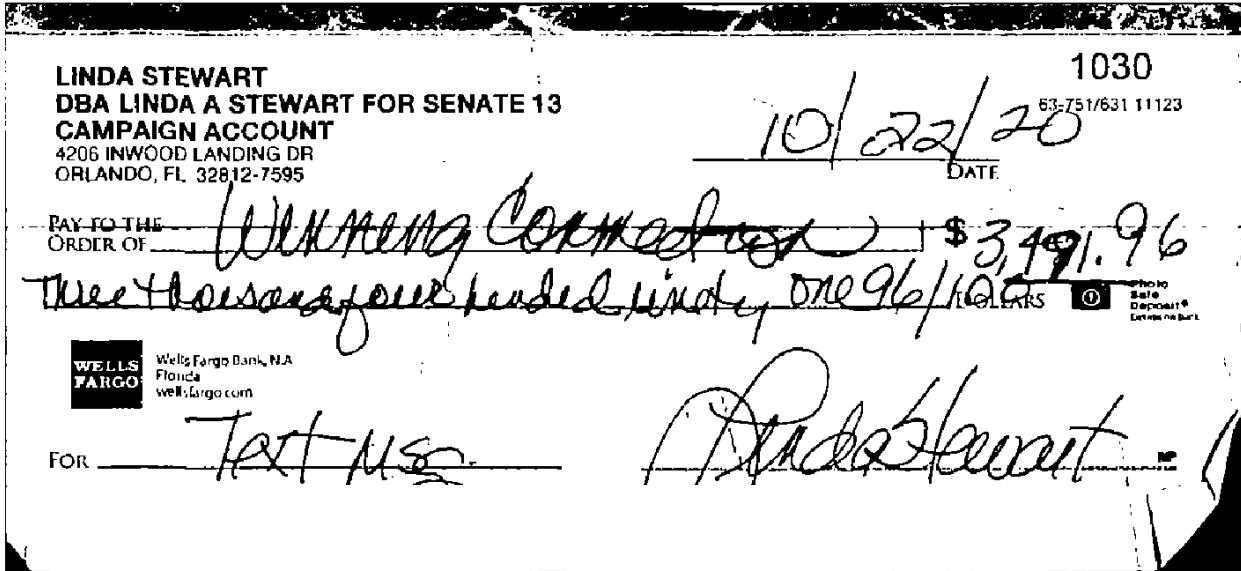 LINDA STEWART
DBA LINDA A STEWART FOR SENATE 13
CAMPAIGN ACCOUNT
4206 INWOOD LANDING DR
ORLANDO, FL 32812-7595
1030
63-751/631 11123
10/22/20
DATE
PAY TO THE
ORDER OF Winning Connection $ 3,491.96
Three thousand four hunded ninety one 96/100 DOLLARS
Photo
Safe
Deposit®
Details on back
WELLS
FARGO
Wells Fargo Bank, N.A.
Florida
wellsfargo.com
FOR Text Msg. Linda Stewart
MP